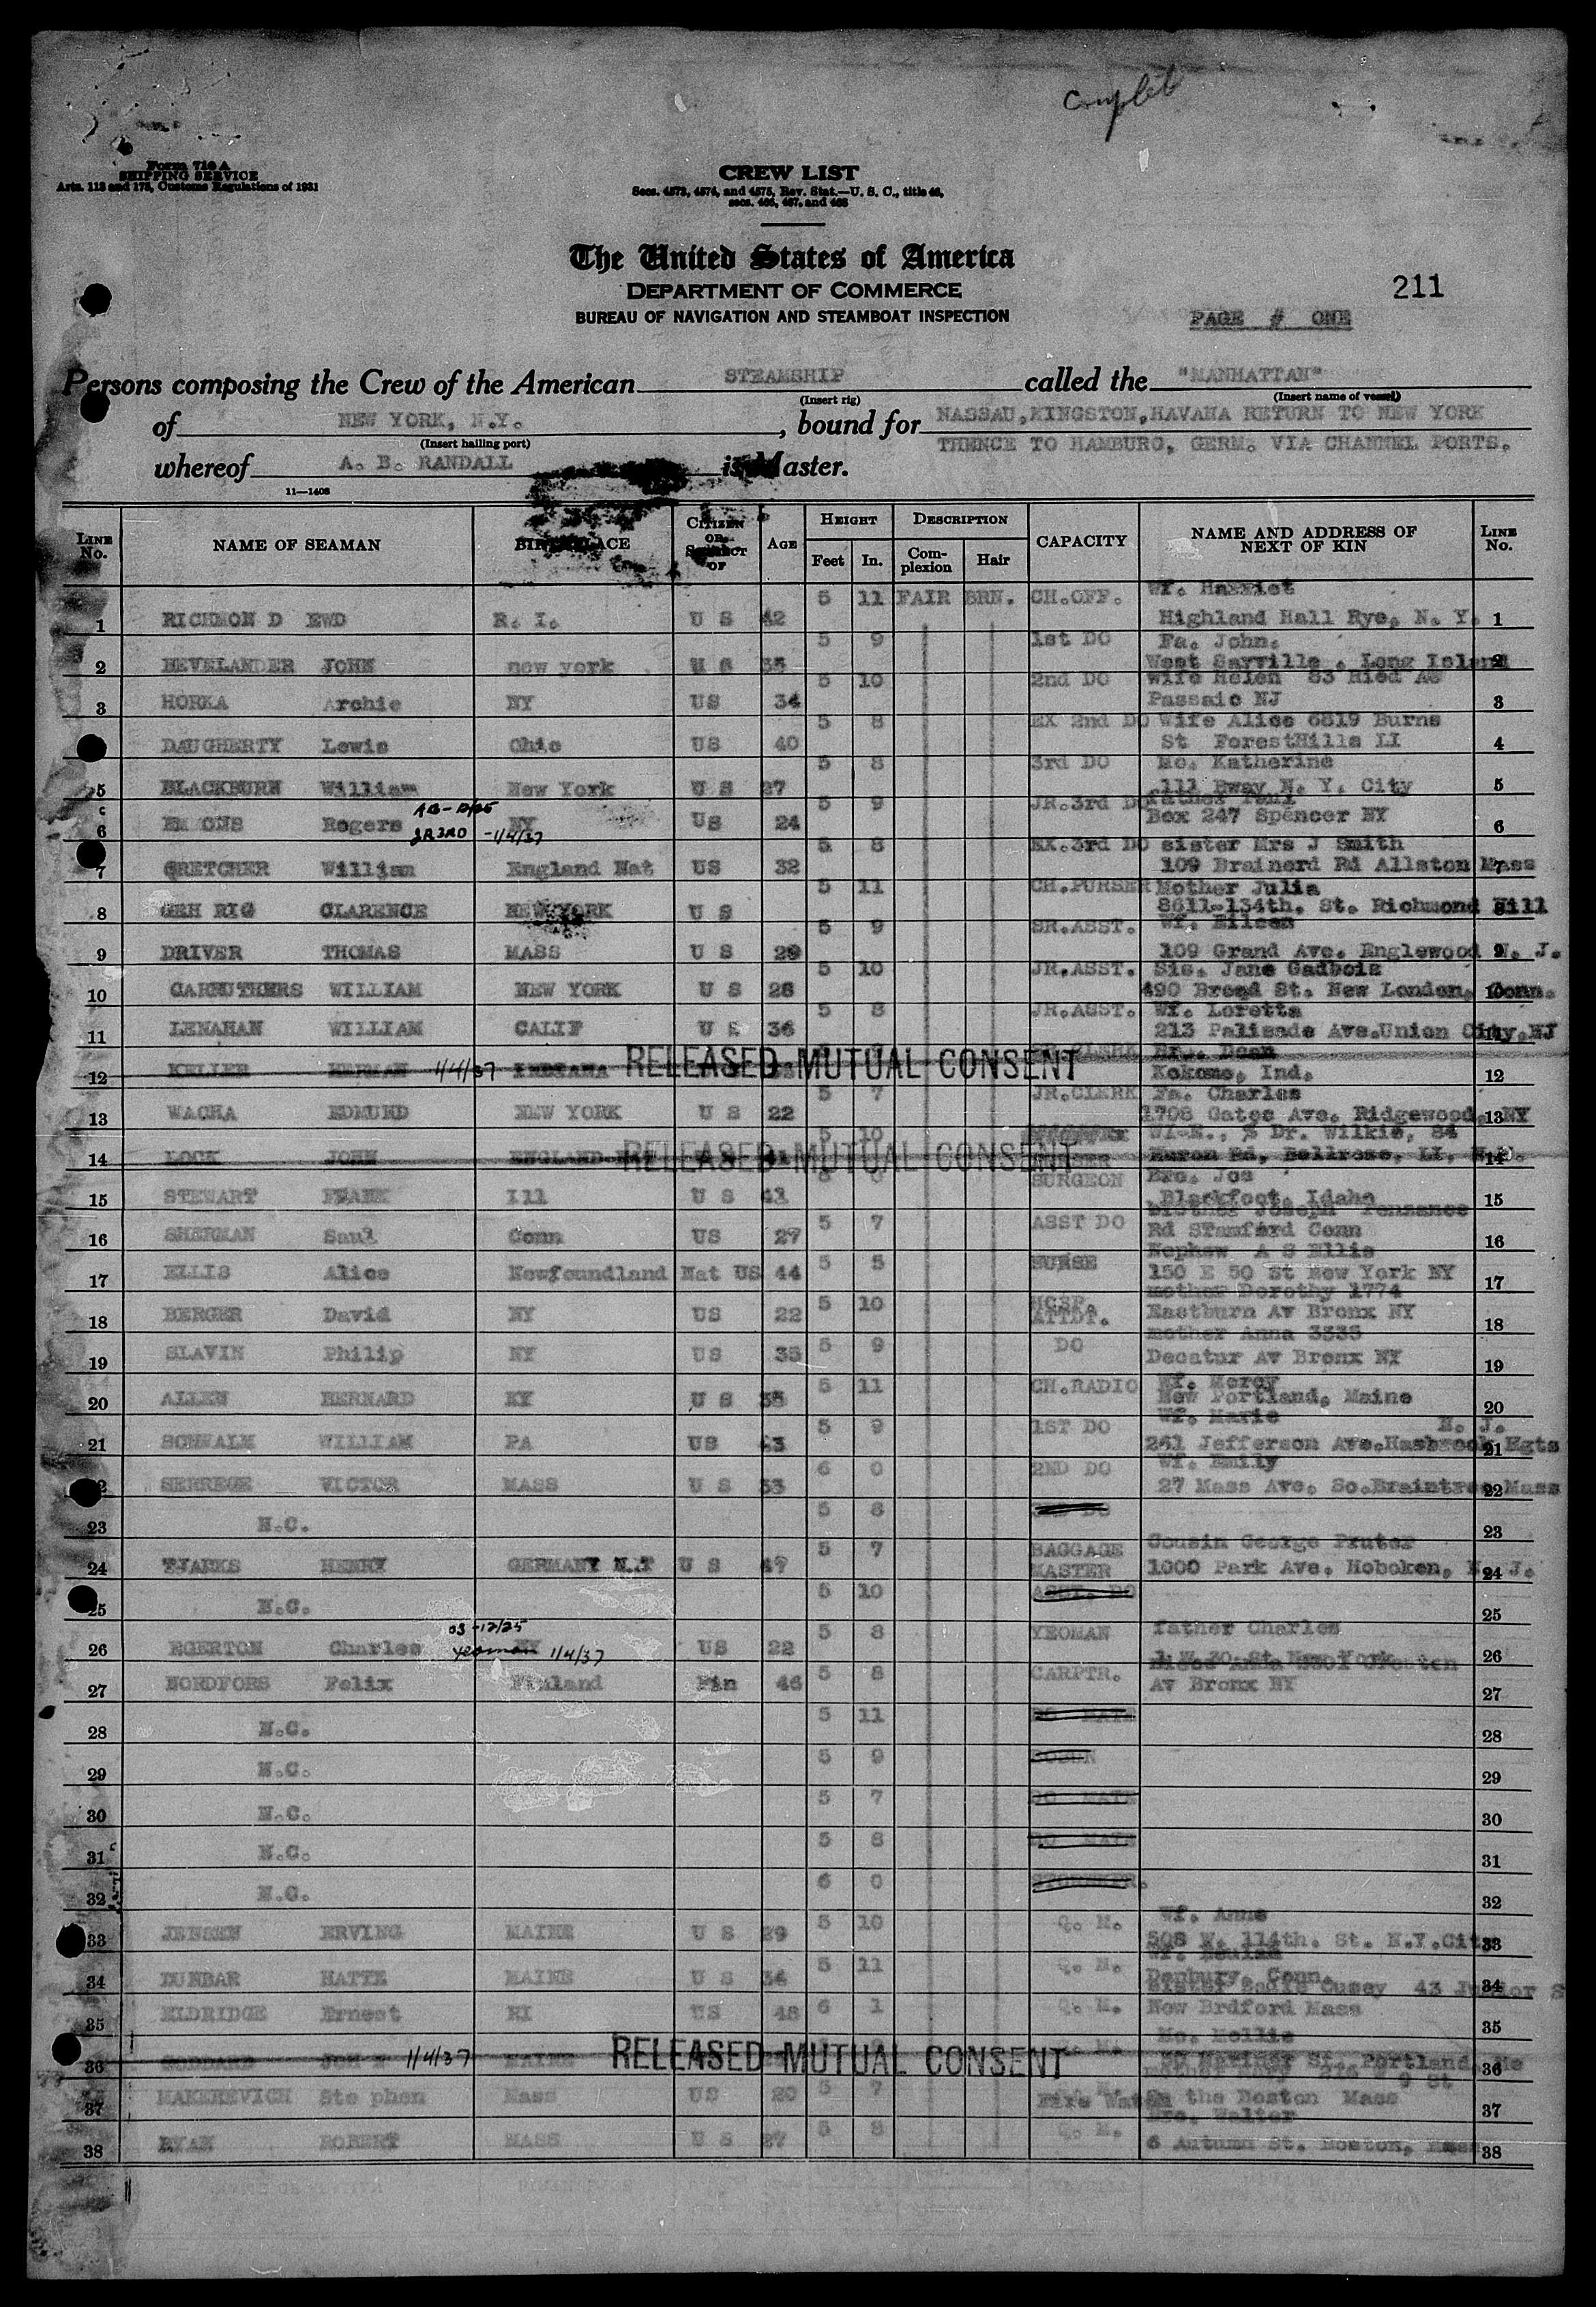 Complet
Form 710 A
SHIPPING SERVICE
Arts. 113 and 175, Customs Regulations of 1931
CREW LIST
Secs. 4573, 4574, and 4575, Rev. Stat.—U. S. C., title 46,
secs. 466, 467, and 468
The United States of America
DEPARTMENT OF COMMERCE
BUREAU OF NAVIGATION AND STEAMBOAT INSPECTION
211
PAGE # ONE
Persons composing the Crew of the American STEAMSHIP called the "MANHATTAN"
(Insert rig) (Insert name of vessel)
of NEW YORK, N.Y. , bound for NASSAU,KINGSTON,HAVANA RETURN TO NEW YORK
(Insert hailing port) THENCE TO HAMBURG, GERM. VIA CHANNEL PORTS.
whereof A. B. RANDALL is Master.
11—1408
LINE No. NAME OF SEAMAN BIRTHPLACE CITIZEN OR SUBJECT OF AGE HEIGHT Feet In. DESCRIPTION Complexion Hair CAPACITY NAME AND ADDRESS OF NEXT OF KIN LINE No.
1 RICHMON D EWD R. I. U S 42 5 11 FAIR BRN. CH.OFF. Wf. Harriet Highland Hall Rye, N. Y. 1
2 BEVELANDER JOHN new york U S 35 5 9 1st DO Fa. John. West Sayville . Long Island 2
3 HORKA Archie NY US 34 5 10 2nd DO wife Helen 83 Ried Av Passaic NJ 3
DAUGHERTY Lewis Ohio US 40 5 8 EX 2nd DO Wife Alice 6819 Burns St ForestHills LI 4
5 BLACKBURN William New York U S 27 5 8 3rd DO Mo. Katherine 111 Bway N. Y. City 5
6 EMMONS Rogers AB-12/25 JR3RD -1/4/37 NY US 24 5 9 JR.3rd DO father Paul Box 247 Spencer NY 6
7 GRETCHER William England Nat US 32 5 8 EX.3rd DO sister Mrs J Smith 109 Brainerd Rd Allston Mass 7
8 GEH RIG CLARENCE NEW YORK U S 5 11 CH.PURSER Mother Julia 8611-134th. St. Richmond Hill 8
9 DRIVER THOMAS MASS U S 29 5 9 SR.ASST. Wf. Eileen 109 Grand Ave. Englewood N. J. 9
10 CARRUTHERS WILLIAM NEW YORK U S 26 5 10 JR.ASST. Sis. Jane Gadbois 490 Broad St. New London, Conn. 10
11 LENAHAN WILLIAM CALIF U S 36 5 8 JR.ASST. Wf. Loretta 213 Palisade Ave.Union City,NJ 11
12 KELLER HERMAN 1/4/37 INDIANA RELEASED MUTUAL CONSENT Kokomo, Ind. 12
13 WACHA EDMUND NEW YORK U S 22 5 7 JR.CLERK Fa. Charles 1708 Gates Ave. Ridgewood, NY 13
14 LOCK JOHN ENGLAND RELEASED MUTUAL CONSENT 5 10 Dr. Wilkie, 84 Huron Rd, Bellrose, LI, 14
15 STEWART FRANK Ill U S 43 SURGEON Bro. Jos Blackfoot, Idaho 15
16 SHERMAN Saul Conn US 27 5 7 ASST DO brother Joseph Penzance Rd Stamford Conn 16
17 ELLIS Alice Newfoundland Nat US 44 5 5 NURSE Nephew A S Ellis 150 E 50 St New York NY 17
18 BERGER David NY US 22 5 10 HOSP. ATTDT. mother Dorothy 1774 Eastburn Av Bronx NY 18
19 SLAVIN Philip NY US 35 5 9 DO mother Anna 3335 Decatur Av Bronx NY 19
20 ALLEN BERNARD KY U S 35 5 11 CH.RADIO Wf. Mercy New Portland, Maine 20
21 SCHWALM WILLIAM PA US 43 5 9 1ST DO Wf. Marie 261 Jefferson Ave.Hasbrook Hgts N. J. 21
SERREGE VICTOR MASS U S 33 6 0 2ND DO Wf. Emily 27 Mass Ave. So.Braintree Mass 22
23 N.C. 5 8 23
24 TJARKS HENRY GERMANY N.T U S 47 5 7 BAGGAGE MASTER Cousin George Pruter 1000 Park Ave. Hoboken, N. J. 24
25 N.C. 5 10 ASST. DO 25
26 EGERTON Charles OS -12/25 Yeoman 1/4/37 NY US 22 5 8 YEOMAN father Charles 26
27 NORDFORS Felix Finland Fin 46 5 8 CARPTR. Av Bronx NY 27
28 N.C. 5 11 28
29 N.C. 5 9 29
30 N.C. 5 7 30
31 N.C. 5 8 31
32 N.C. 6 0 STOREKPR. 32
33 JENSEN ERVING MAINE U S 29 5 10 Q. M. Wf. Anne 508 W. 114th. St. N.Y.City 33
34 DUNBAR HATTE MAINE U S 34 5 11 Q. M. Danbury, Conn. 34
35 ELDRIDGE Ernest RI US 48 6 1 Q. M. sister Sadie Cusey 43 Junior S New Brdford Mass 35
36 GODDARD 1/4/37 MAINE RELEASED MUTUAL CONSENT Mo. Mollie St. Portland, Me 36
37 MAKEREVICH Ste phen Mass US 20 5 7 Fire Watch the Boston Mass 37
38 RYAN ROBERT MASS U S 27 5 8 Q. M. Bro. Walter 6 Autumn St. Boston, Mass 38